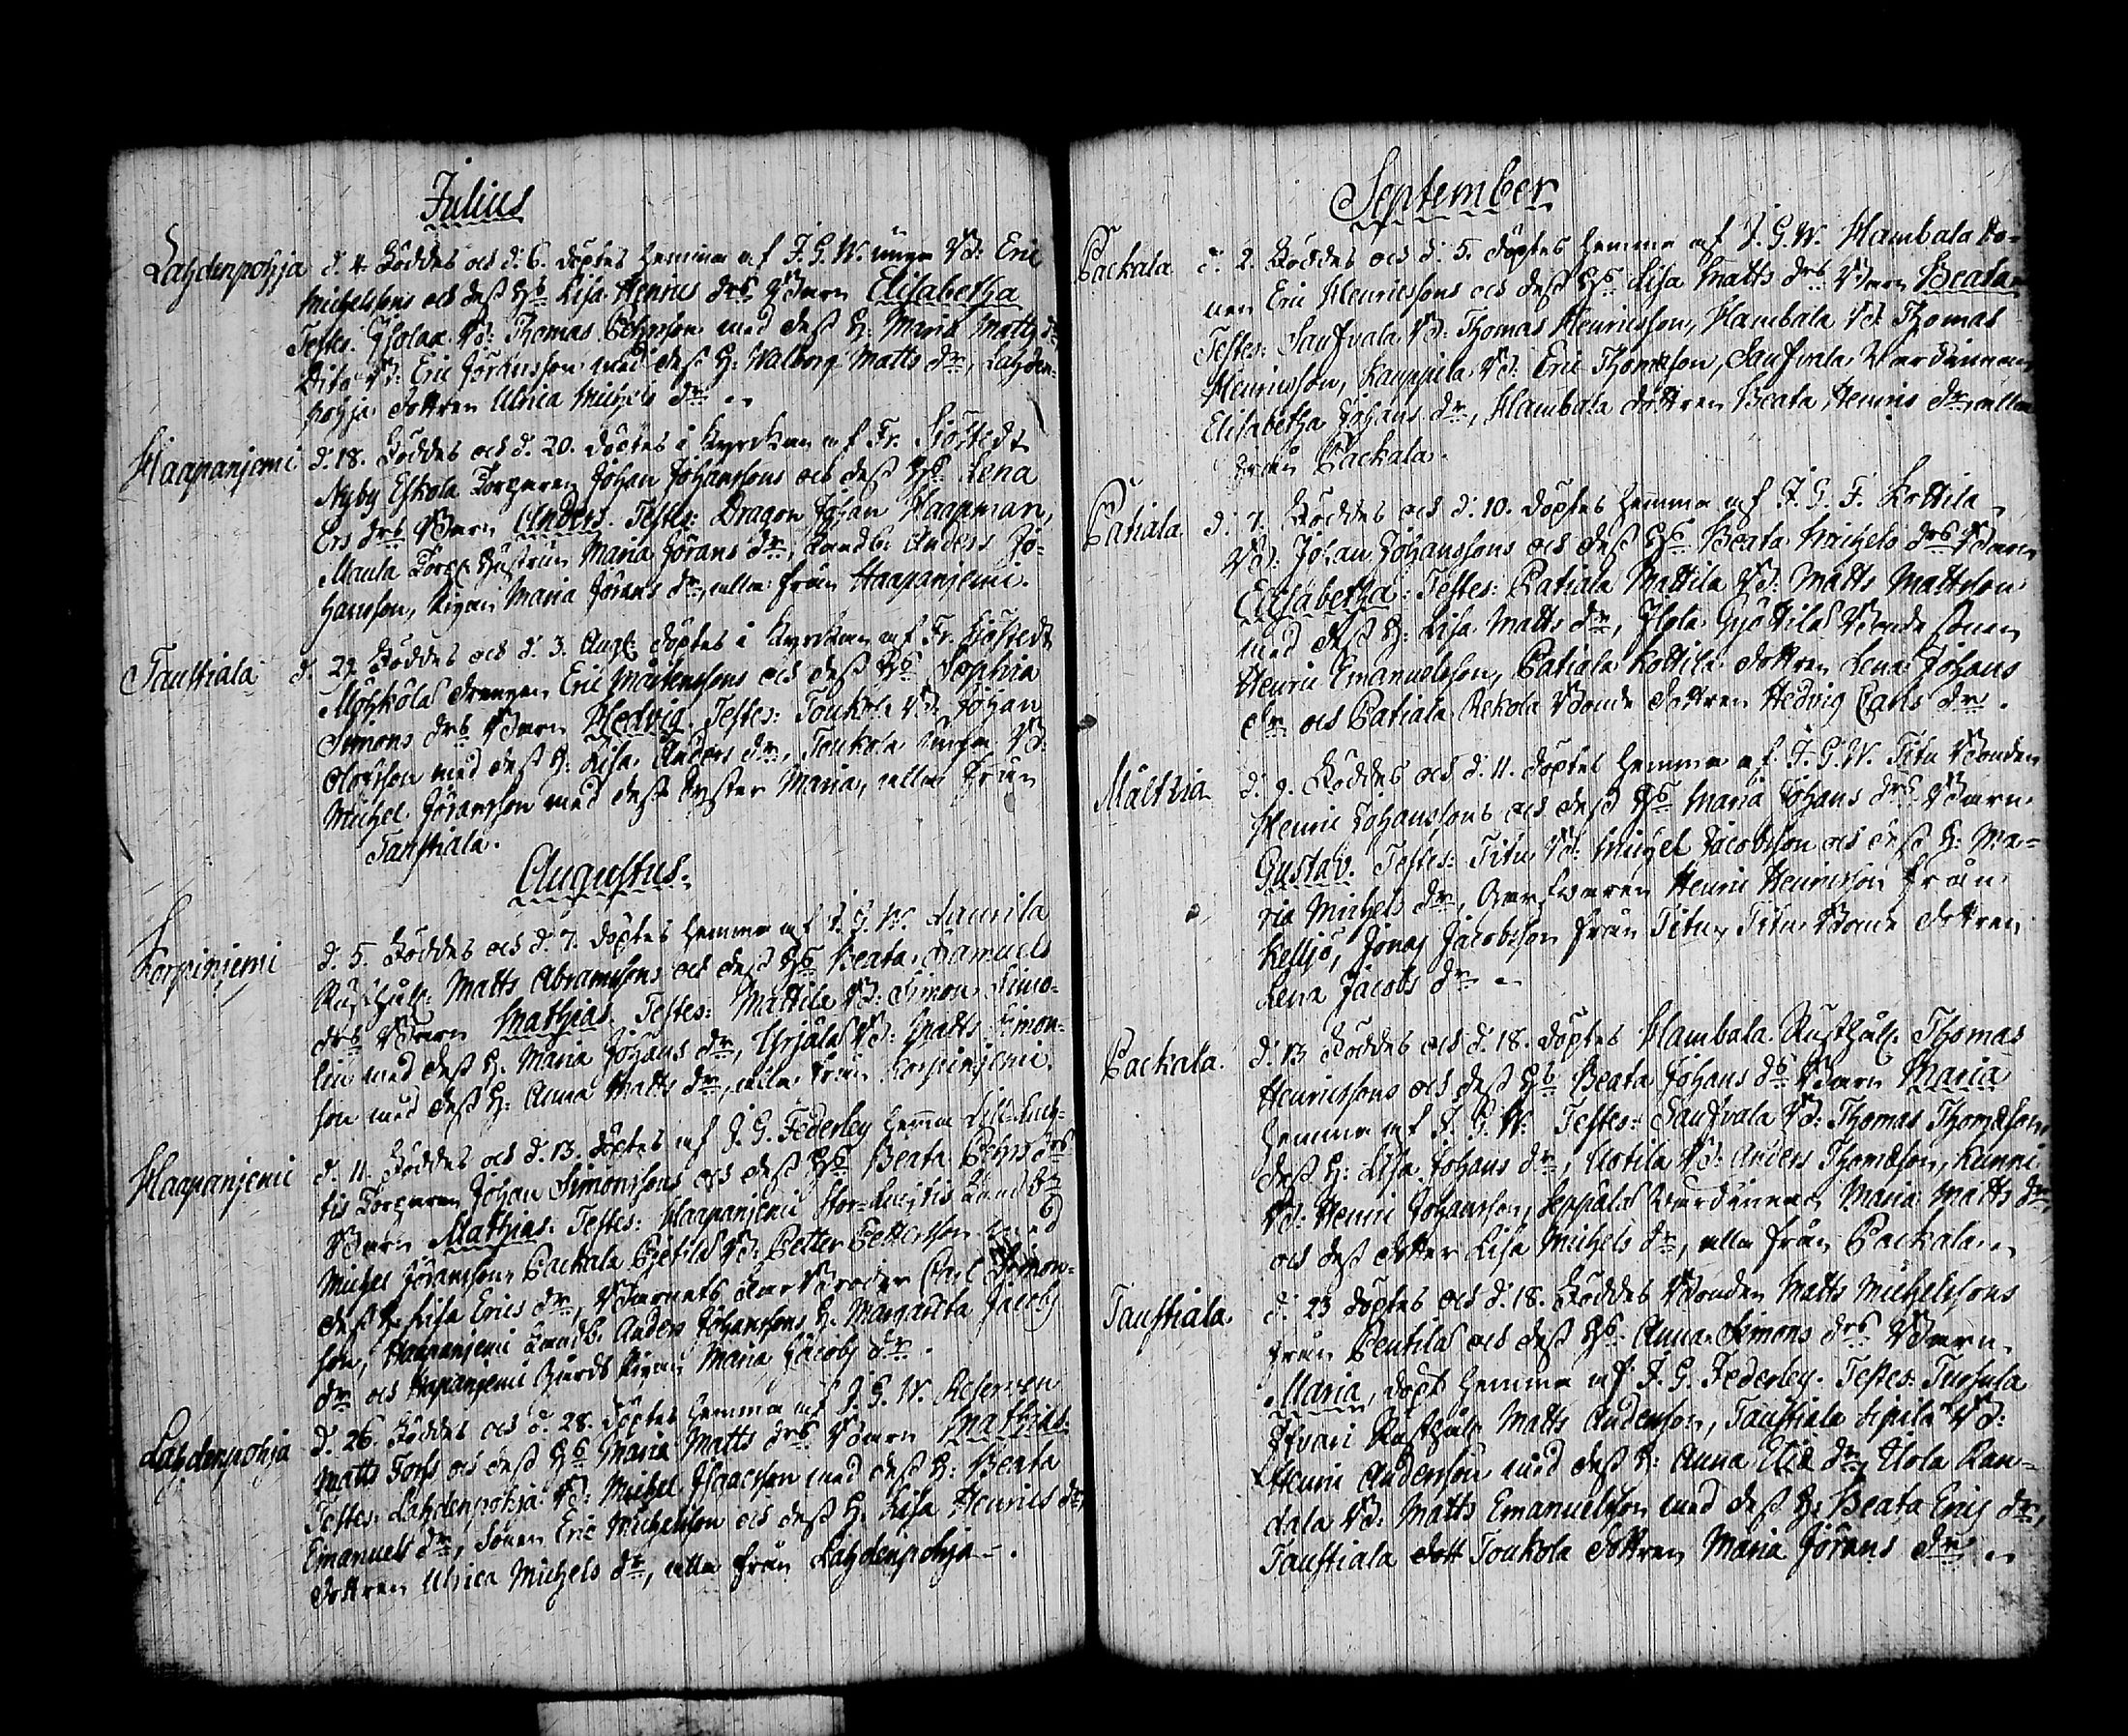 Julius
Lahdenpohja d. 4. Föddes och d. 6. döptes hemma af J. G. W. unga Bd: Eric
Michelssons och dess Hs Lisa Henrics drs Barn Elisabetha
Testes: Bd: Thomas med dess H: Maria Matts dr,
Dito Bd: Eric Jöransson med dess H: Walborg Matts dr, Lahden-
pohja dottren Ulrica Michels dr
Haapanjemi d. 18. Föddes och d. 20. döptes i Kyrckan af Fr. Sjöstedt
Nyby Eskola Torparen Johan Johanssons och dess Hs Lena
Ers drs Barn Anders. Testes: Dragon Johan Haapman,
Maula Torp. hustrun Maria Jörans dr, Bonds. Anders Jo-
hansson, Pigan Maria Jörans dr, alla från Haapanjemi.
Taustiala d. 29 Föddes och d. 3. Aug: döptes i Kyrckan af Fr. Sjöstedt
Mösköla drengen Eric Mårtenssons och dess Hs Sophia
Simons drs Barn Hedvig. Testes: Toukola Bd: Johan
Olofsson med dess H: Lisa Anders dr, Toukola unga Bd:
Michel Jöransson med dess Syster Maria, alla från
Taustiala.
Augustus.
Korpinjemi d. 5. Föddes och d. 7. döptes hemma af J. G. W. Laurila
Rusthåll: Matts Abramssons och dess Hs Beata Samuels
drs Barn Mathias. Testes: Mattila Bd: Simon Simo-
lin med dess H: Maria Johans dr, Yrjälä Bd: Matts Simon-
son med dess H: Anna Matts dr, alla från Korpinjemi.
Haapanjemi d. 11. Föddes och d. 13. döptes af J. G. Federley hemma Lill-Luck-
tis Torparen Johan Simonssons och dess Hs Beata Pehrs drs
Barn Mathias. Testes: Haapanjemi Stor-Lucktis
Michel Jöransson, Packala Bd: Petter Pettersson med
dess H: Lisa Erics dr, Barnets Carl Simon-
son, Haapanjemi Bonds. Anders Johanssons H: Margareta Jacobs
dr och Haapanjemi Pigan Maria Jacobs dr.
Lahdenpohja d. 26. Föddes och d. 28. döptes hemma af J. G. W. Reserven
Matts Forss och dess Hs Maria Matts drs Barn Mathias.
Testes: Lahdenpohja Bd: Michel Isaacsson med dess H: Beata
Emanuels dr, Sonen Eric Michelsson och dess H: Lisa Henrics dr,
Dottren Ulrica Michels dr, alla från Lahdenpohja.
September
Packala d. 2. Föddes och d. 5. döptes hemma af J. G. W. Hambala Bo-
nen Eric Henricssons och dess Hs Lisa Matts drs Barn Beata
Testes: Saufvala Bd: Thomas Henricsson, Hambala Bd: Thomas
Henricsson, Kauppila Bd: Eric Thomsson, Saufvala Värdinnan
Elisabetha Johans dr, Hambala dottren Beata Henrics dr, alla
från Packala.
Patiala d. 7. Föddes och d. 10. döptes hemma af J. G. F. Kottila
Bd: Johan Johanssons och dess Hs Beata Michels drs Barn
Elisabetha: Testes: Patiala Mattila Bd: Matts Mattsson
med dess H: Lisa Matts dr, Gyöttilä Bonde Sonen
Henric Emanuelsson, Patiala Kottila dottren Lena Johans
dr och Patiala Rekola Bonde dottren Hedvig Carls dr.
Mälkkiä d. 9. Föddes och d. 11. döptes hemma af J. G. W. Titu Bonden
Henric Johanssons och dess Hs Maria Johans drs Barn
Gustav. Testes: Titu Bd: Michel Jacobsson och dess H: Ma-
ria Michels dr, Henric Henricsson från
Kelljö, Jonas Jacobsson från Titu, Titu Bonde dottren
Lena Jacobs dr
Packala. d. 13 Föddes och d. 18. döptes Hambala Rusthåll: Thomas
Henricssons och dess Hs Beata Johans ds Barn Maria
hemma af J. G. W. Testes: Saufvala Bd: Thomas Thomsson,
dess H: Lisa Johans dr, Uotila Bd: Anders Thomsson, Kunni
Bd: Henric Johansson, Seppälä Värdinnan Maria Matts dr,
och dess dotter Lisa Michels dr, alla från Packala.
Taustiala. d. 23 döptes och d. 18. Föddes Bonden Matts Michelssons
från Pentilä och dess Hs Anna Simons drs Barn
Maria, döpt hemma af J. G. Federley. Testes: Tursula
Rusthåll: Matts Andersson, Taustiala Bd:
Henric Andersson med dess H: Anna dr, Uola Ran-
dala Bd: Matts Emanuelsson med dess H: Beata Erics dr,
Taustiala dott Toukola dottren Maria Jörans dr